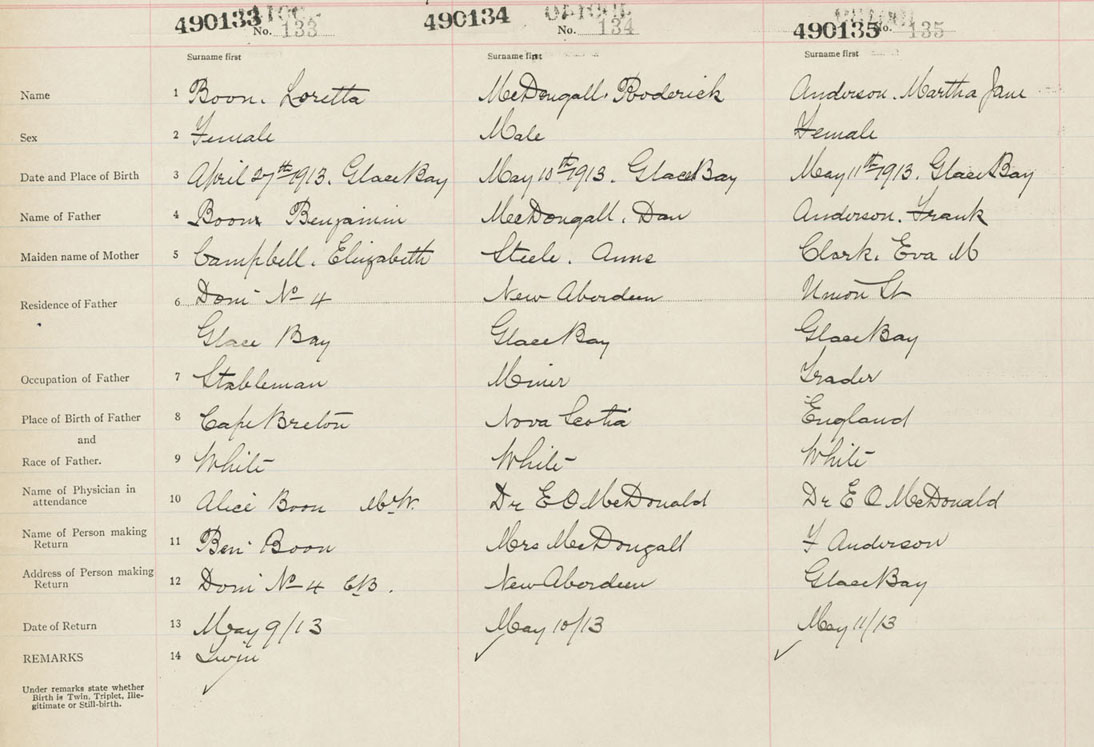 490133 No. 133 490134 No. 134 490135 No. 135
Surname first Surname first Surname first
Name 1 Boon, Loretta McDougall, Roderick Anderson, Martha Jane
Sex 2 Female Male Female
Date and Place of Birth 3 April 27th 1913. Glace Bay May 10th 1913. Glace Bay May 11th 1913. Glace Bay
Name of Father 4 Boon, Benjamin McDougall, Dan Anderson, Frank
Maiden name of Mother 5 Campbell, Elizabeth Steele, Anne Clark, Eva M
Residence of Father 6 Dom No 4 New Aberdeen Union St
Glace Bay Glace Bay Glace Bay
Occupation of Father 7 Stableman Miner Trader
Place of Birth of Father 8 Cape Breton Nova Scotia England
and
Race of Father. 9 White White White
Name of Physician in
attendance 10 Alice Boon M.W. Dr E O McDonald Dr E O McDonald
Name of Person making
Return 11 Ben Boon Mrs McDougall F Anderson
Address of Person making
Return 12 Dom No 4 C.B. New Aberdeen Glace Bay
Date of Return 13 May 9/13 May 10/13 May 11/13
REMARKS 14 Twin
Under remarks state whether
Birth is Twin, Triplet, Ille-
gitimate or Still-birth.